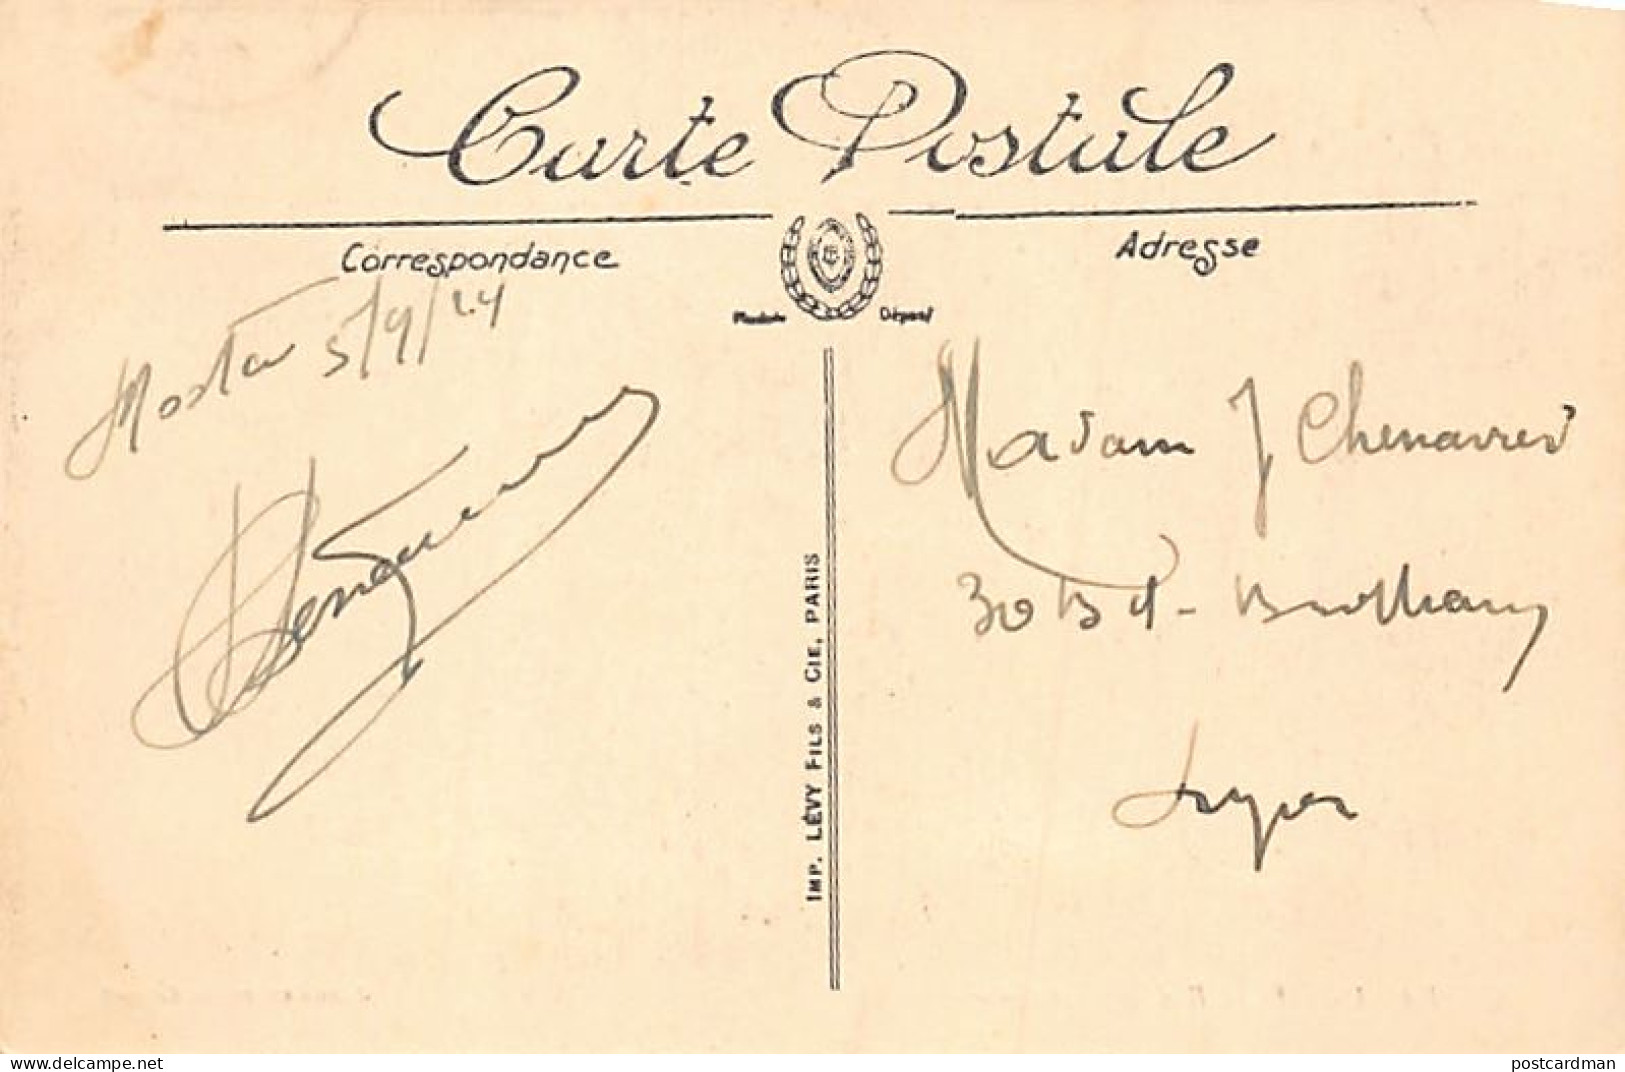 Carte Postale
Correspondance
Adresse
Modèle Déposé
Mosta 5/9/24
Madam J Chenavier
30 Bd
Lyon
IMP. LÉVY FILS & CIE, PARIS
www.delcampe.net
postcardman